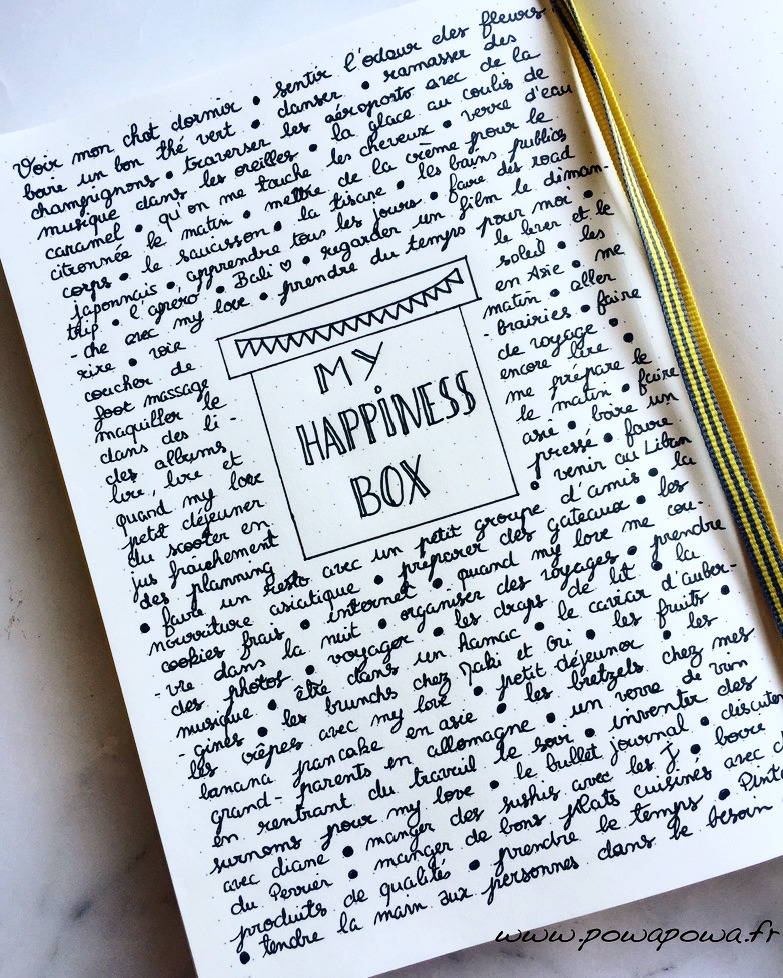 Voir mon chat dormir • sentir l'odeur des fleurs
boire un bon thé vert • danser • ramasser des
champignons • traverser les aéroports avec de la
musique dans les oreilles • la glace au coulis de
caramel • qu'on me touche les cheveux • verre d'eau
citronnée le matin • mettre de la crème pour le
corps • le saucisson • la tisane • les bains publics
japonnais • apprendre tous les jours • faire des road
trip • l'apéro • Bali ♡ • regarder un film le diman-
-che avec my love • prendre du temps pour moi •
rire • voir le lever et le
coucher de soleil • les
foot massage en Asie • me
maquiller le matin • aller
dans des li- -brairies • faire
des albums de voyage •
lire, lire et encore lire •
quand my love me prépare le
petit déjeuner le matin • faire
du scooter en asie • boire un
jus fraîchement pressé • faire
des planning • venir au Liban
• faire un resto avec un petit groupe d'amis • la
nourriture asiatique • préparer des gateaux • les
cookies frais • internet • quand my love me cou-
-vre dans la nuit • organiser des voyages • prendre
des photos • voyager • les draps de lit • la
musique • être dans un Hamac • le caviar d'auber-
-gines • les brunchs chez Jaki et Ori • les fruits •
les crêpes avec my love • petit déjeuner • les
banana pancake en asie • les bretzels chez mes
grand-parents en allemagne • un verre de vin
en rentrant du travail le soir • inventer des
surnoms pour my love • le bullet journal • discuter
avec diane • manger des sushis avec les J • boire
du Perrier • manger de bons plats cuisinés avec
produits de qualités • prendre le temps •
• tendre la main aux personnes dans le besoin
MY
HAPPINESS
BOX
www.powapowa.fr